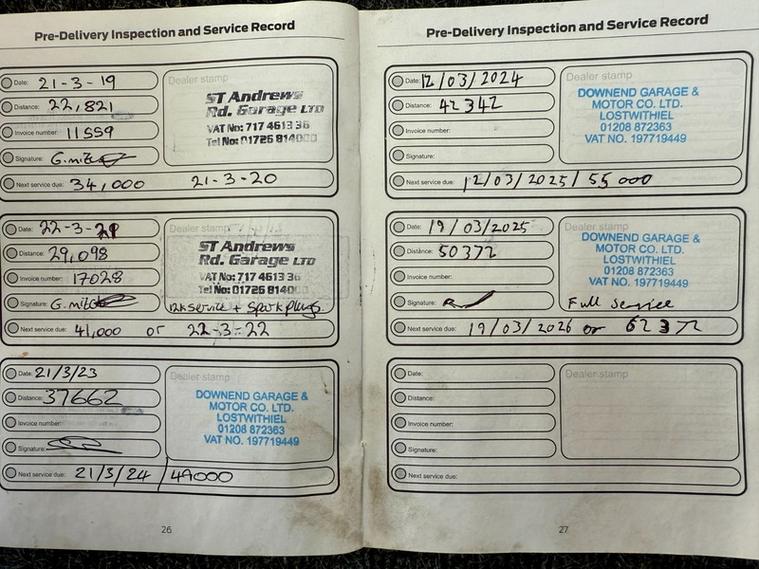 Pre-Delivery Inspection and Service Record
Date: 21-3-19
Distance: 22,821
Invoice number: 11559
Signature: G.mit
Next service due: 34,000 21-3-20
Dealer stamp
ST Andrews
Rd. Garage LTD
VAT No: 717 4613 36
Tel No: 01726 814000
Date: 22-3-21
Distance: 29,098
Invoice number: 17028
Signature: G.mit
Next service due: 41,000 or 22-3-22
Dealer stamp
ST Andrews
Rd. Garage LTD
VAT No: 717 4613 36
Tel No: 01726 8140
12k service + spark plugs.
Date: 21/3/23
Distance: 37662
Invoice number:
Signature:
Next service due: 21/3/24 / 49000
Dealer stamp
DOWNEND GARAGE &
MOTOR CO. LTD.
LOSTWITHIEL
01208 872363
VAT NO. 197719449
26
Pre-Delivery Inspection and Service Record
Date: 12/03/2024
Distance: 42342
Invoice number:
Signature:
Next service due: 12/03/2025 / 55000
Dealer stamp
DOWNEND GARAGE &
MOTOR CO. LTD.
LOSTWITHIEL
01208 872363
VAT NO. 197719449
Date: 19/03/2025
Distance: 50372
Invoice number:
Signature:
Next service due: 19/03/2026 or 62372
Dealer stamp
DOWNEND GARAGE &
MOTOR CO. LTD.
LOSTWITHIEL
01208 872363
VAT NO. 197719449
Full service
Date:
Distance:
Invoice number:
Signature:
Next service due:
Dealer stamp
27